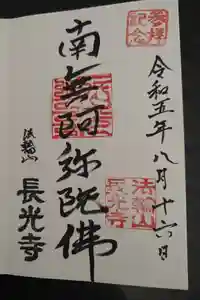 参拝記念
令和五年八月十六日
南無阿弥陀佛
法輪山
長光寺
法輪山
長光寺